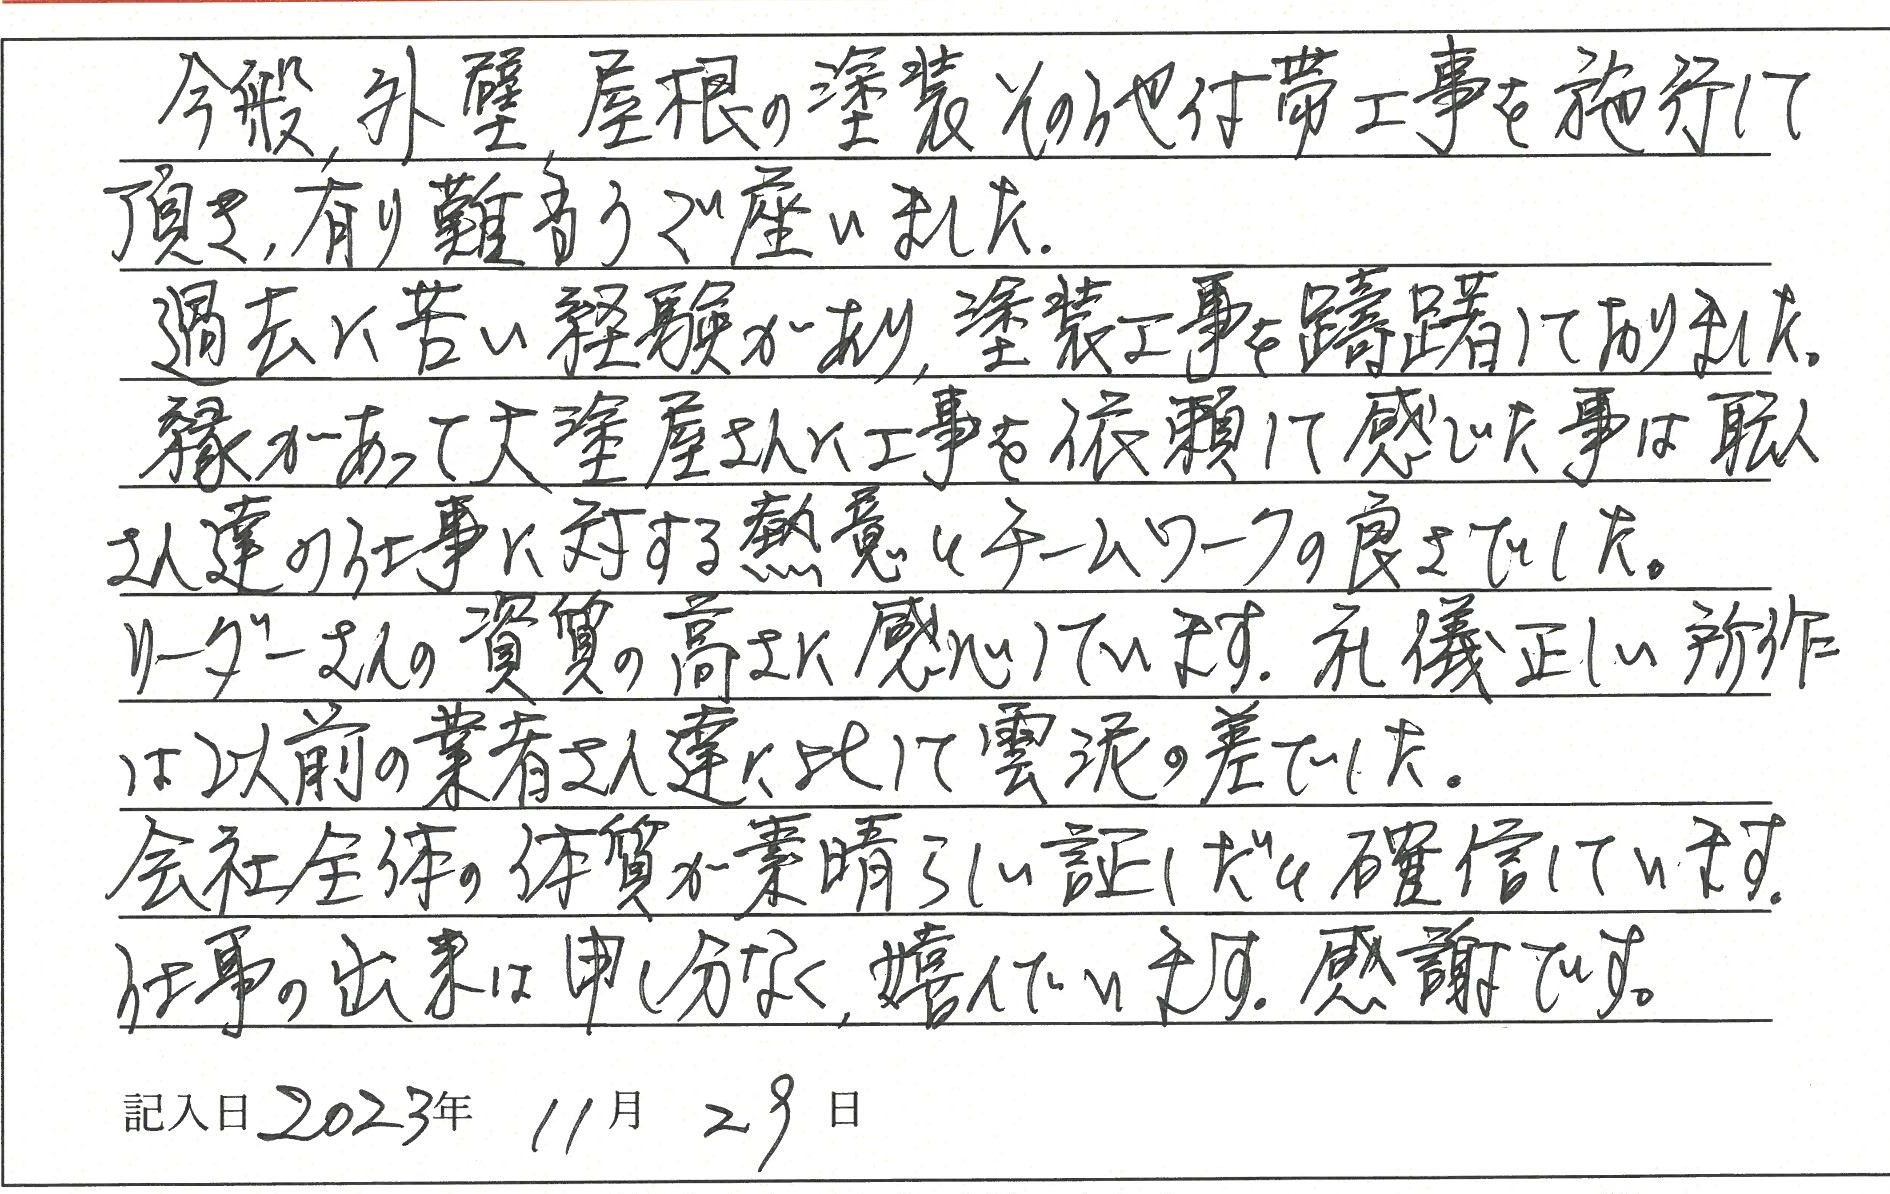 今般,外壁,屋根の塗装その他付帯工事を施行して
頂き,有り難う御座いました.
過去に苦い経験があり,塗装工事を躊躇しておりました。
縁があって大塗屋さんに工事を依頼して感じた事は職人
さん達の仕事に対する熱意とチームワークの良さでした。
リーダーさんの資質の高さに感心しています.礼儀正しい所作
は以前の業者さん達に比して雲泥の差でした。
会社全体の体質が素晴らしい証しだと確信しています.
仕事の出来は申し分なく,嬉んでいます.感謝です。
記入日 2023年 11月 29日